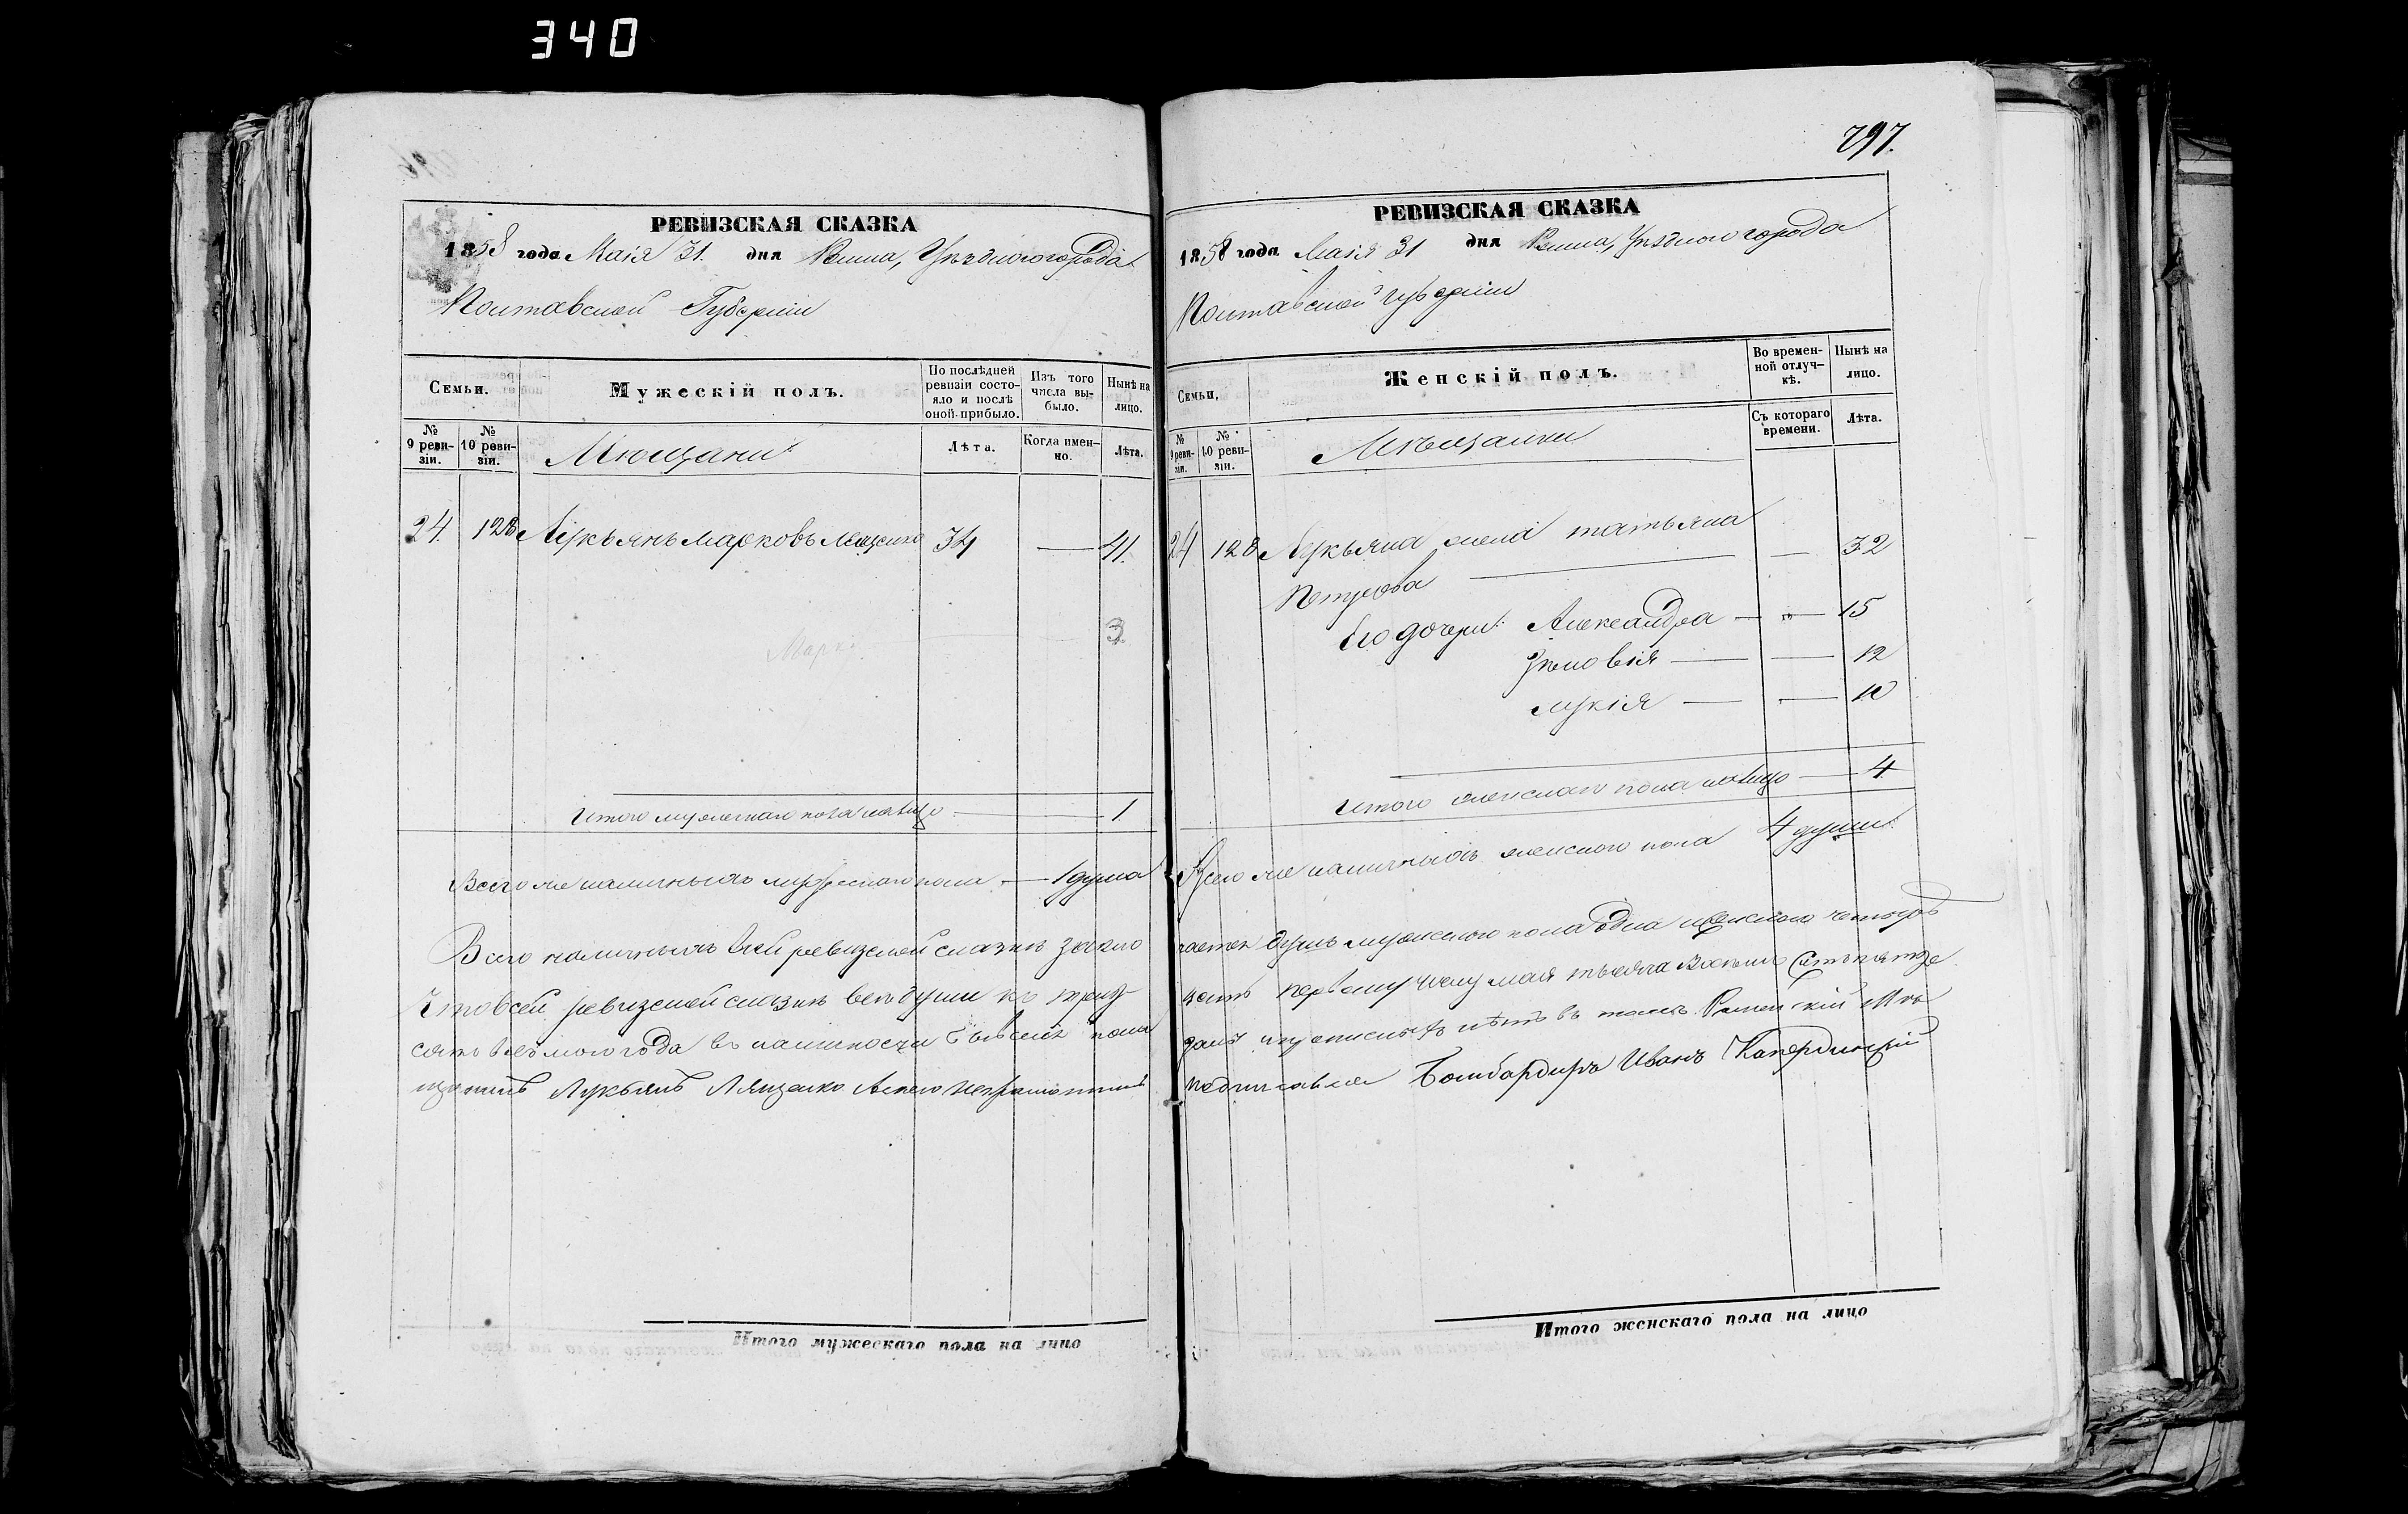 340
РЕВИЗСКАЯ СКАЗКА
1858 года Маія 31. дня Ромна, Уѣзднаго города
Полтавской Губерніи
Семьи.
Мужескій полъ.
По послѣдней ревизіи состояло и послѣ оной прибыло.
Изъ того числа выбыло.
Нынѣ на лицо.
№ 9 ревизіи.
№ 10 ревизіи.
Мющани
Лѣта.
Когда именно.
Лѣта.
24 128 Лукьянъ марковъ 34 — 41.
Марк
3.
Итого мужескаго пола налицо — 1
Всего же наличныхъ мужескаго пола — 1 душа
Всего наличныхъ въ сей ревизской сказкѣ заклю
Что всей ревизской сказкѣ всѣ души къ трид
сятъ восьмого года въ наличности были пола
щанинъ Лукьянъ Лященко Анего неграмотнаго
Итого мужескаго пола на лицо
797.
РЕВИЗСКАЯ СКАЗКА
1858 года Маія 31 дня Ромна, Уѣзднаго города
Полтавской губерніи
Семьи,
Женскій полъ.
Во временной отлучкѣ.
Нынѣ на лицо.
№ 9 ревизіи.
№ 10 ревизіи.
Мѣщанки
Съ котораго времени.
Лѣта.
24 128 Лукьяна жена татьяна — 32
Петрова
Его дочери: Александра — — 15
Зѣновія — — 12
лукія — — 10
Итого женскаго пола налицо — 4
Всего же наличныхъ женского пола 4 души
чается душъ мужескаго пола одна иженскаго четыре
цать первому числу мая тысяча восемьсотъ пятде
залѣ и прописныхъ нѣтъ въ томъ Роменскій Мѣ
подписался Бомбардиръ Иванъ
Итого женскаго пола на лицо